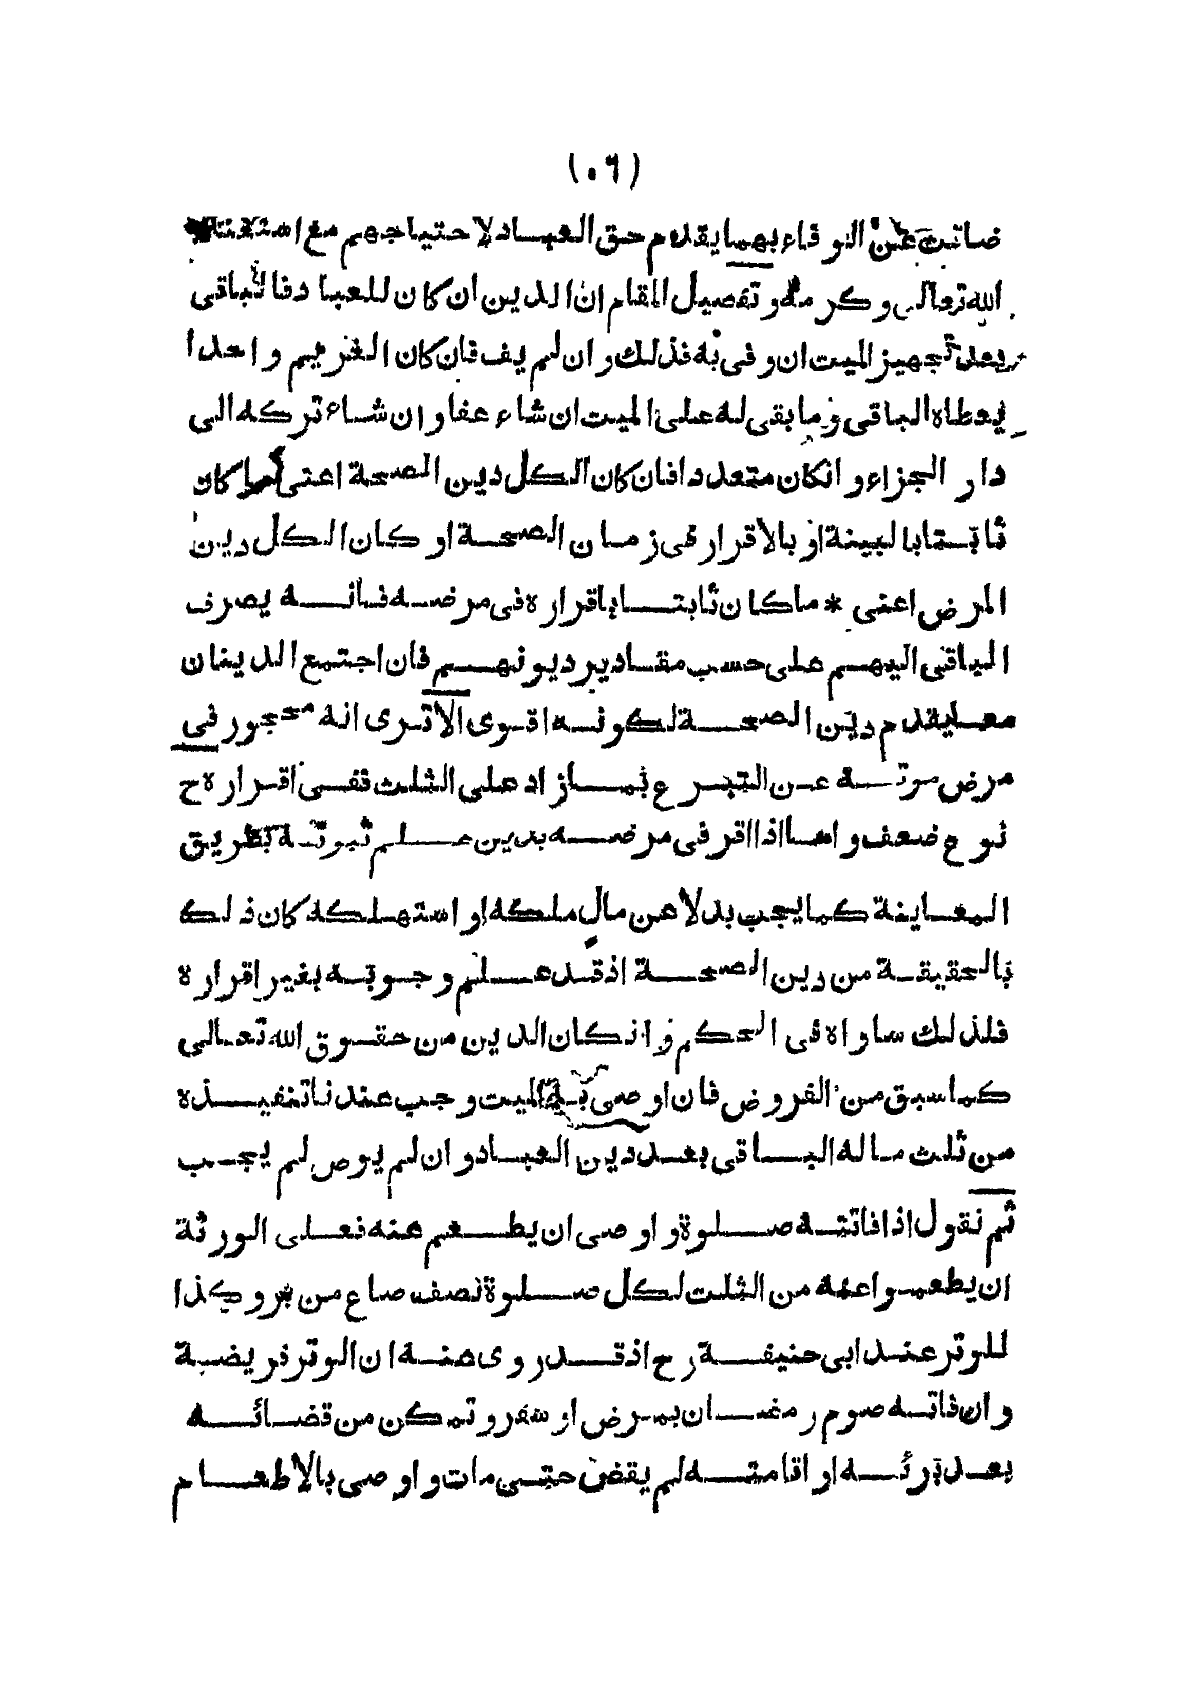 (٠٦)
ضاقت عن الوفاء بهما يقدم حق العباد لاحتياجهم مع استغناء
الله تعالى وكرمه وتفصيل المقام ان الدين ان كان للعباد فالباقى
بعد تجهيز الميت ان وفى به فذلك وان لم يف فان كان الغريم واحدا
يعطاه الباقى وما بقى له على الميت ان شاء عفا وان شاء تركه الى
دار الجزاء وانكان متعددا فان كان الكل دين الصحة اعنى ما كان
ثابتا بالبينة او بالاقرار فى زمان الصحة او كان الكل دين
المرض اعنى * ما كان ثابتا باقراره فى مرضه فانه يصرف
الباقى اليهم على حسب مقادير ديونهم فان اجتمع الدينان
معا يقدم دين الصحة لكونه اقوى الاترى انه محجور فى
مرض موته عن التبرع بما زاد على الثلث ففى اقراره ح
نوع ضعف واما اذا اقر فى مرضه بدين علم ثبوته بطريق
المعاينة كما يجب بدلا عن مال ملكه او استهلكه كان ذلك
بالحقيقة من دين الصحة اذ قد علم وجوبه بغير اقراره
فلذلك ساواه فى الحكم وانكان الدين من حقوق الله تعالى
كما سبق من الفروض فان اوصى به الميت وجب عندنا تنفيذه
من ثلث ماله الباقى بعد دين العباد وان لم يوص لم يجب
ثم نقول اذا فاتته صلوة واوصى ان يطعم عنه فعلى الورثة
ان يطعموا عنه من الثلث لكل صلوة نصف صاع من بر وكذا
للوتر عند ابى حنيفة رح اذ قد روى عنه ان الوتر فريضة
وان فاته صوم رمضان بمرض او سفر وتمكن من قضائه
بعد برئه او اقامته لم يقض حتى مات واوصى بالاطعام